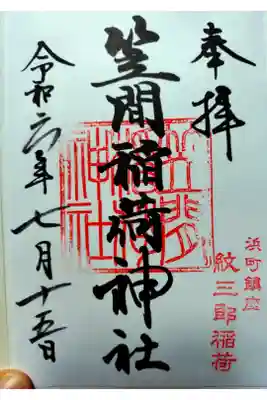 奉拝
浜町鎮座
紋三郎稲荷
笠間稲荷神社
笠間稲荷神社
令和六年七月十五日